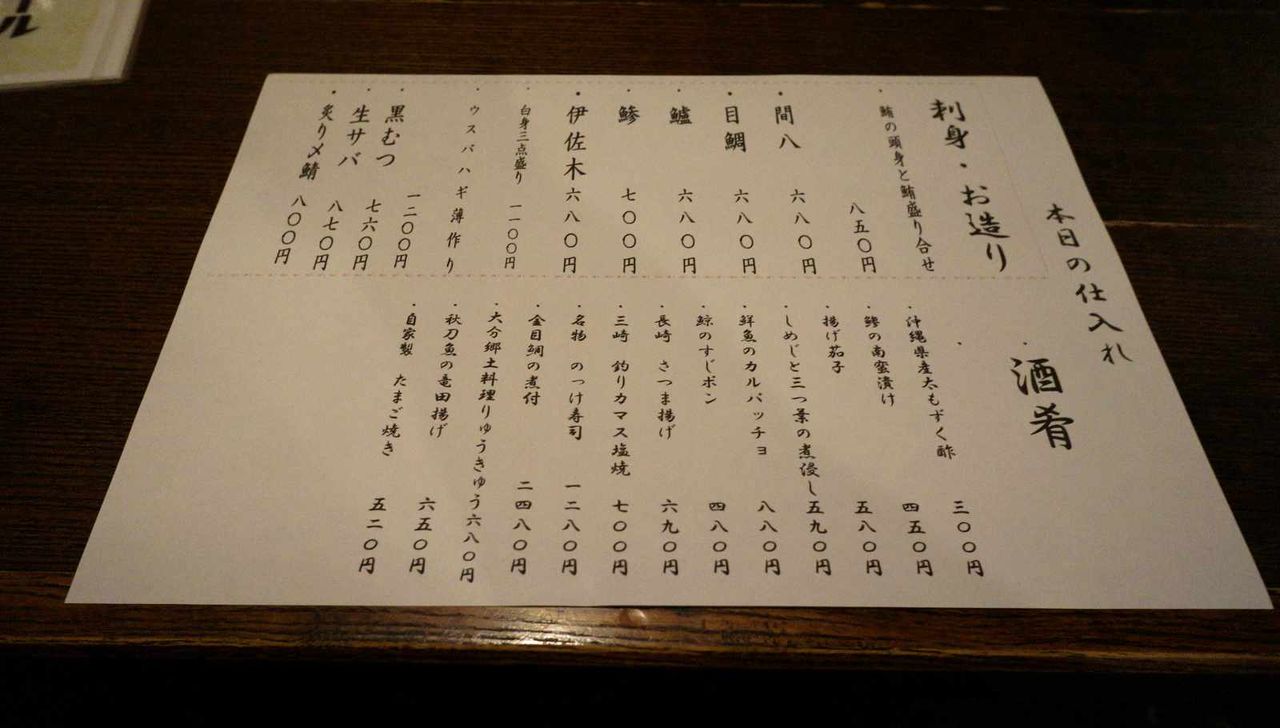 本日の仕入れ
刺身・お造り
・鮪の頭身と鮪盛り合せ
八五〇円
・間八 六八〇円
・目鯛 六八〇円
・鱸 六八〇円
・鯵 七〇〇円
・伊佐木 六八〇円
・白身三点盛り 一一〇〇円
・ウスバハギ薄作り
一二〇〇円
・黒むつ 七六〇円
・生サバ 八七〇円
・炙り〆鯖 八〇〇円
酒肴
・沖縄県産太もずく酢 三〇〇円
・鯵の南蛮漬け 四五〇円
・揚げ茄子 五八〇円
・しめじと三つ葉の煮浸し 五九〇円
・鮮魚のカルパッチョ 八八〇円
・鯨のすじポン 四八〇円
・長崎 さつま揚げ 六九〇円
・三崎 釣りカマス塩焼 七〇〇円
・名物 のっけ寿司 一二八〇円
・金目鯛の煮付 二四八〇円
・大分郷土料理りゅうきゅう 六八〇円
・秋刀魚の竜田揚げ 六五〇円
・自家製 たまご焼き 五二〇円